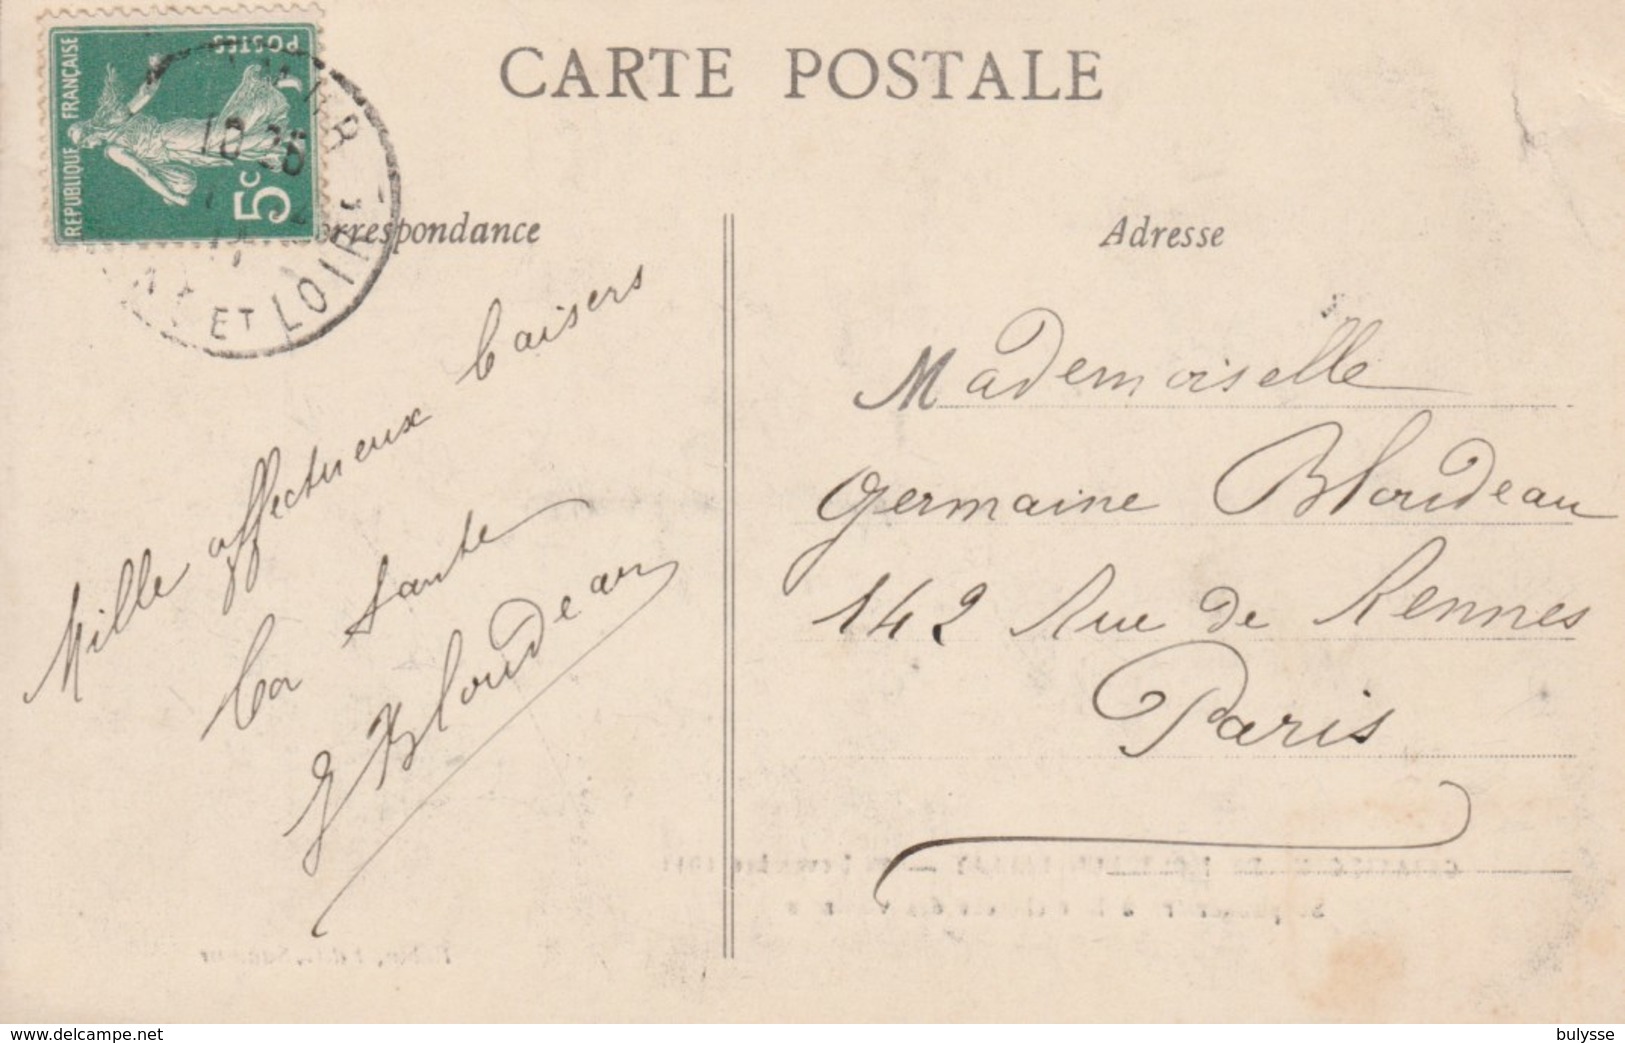 CARTE POSTALE
REPUBLIQUE FRANÇAISE
POSTES
5c
10 26
ET LOIRE
Correspondance
Adresse
Mille affectueux baisers
Ta tante
G Bloudeau
Mademoiselle
Germaine Bloudeau
142 Rue de Rennes
Paris
www.delcampe.net
bulysse